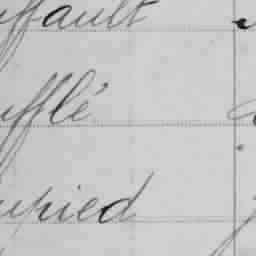 uffault
ufflé
upied